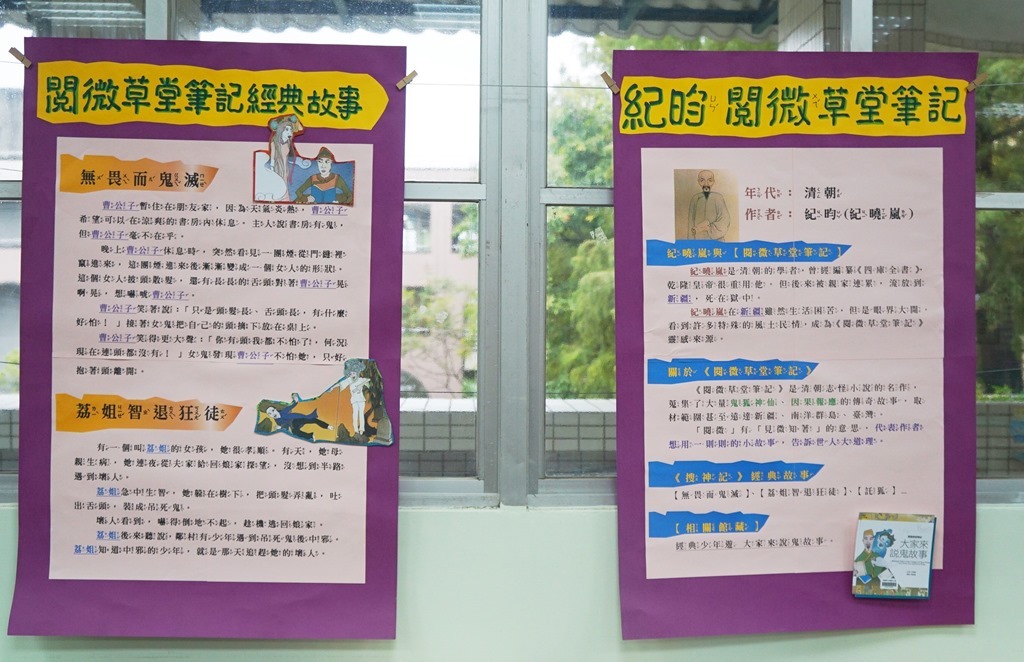 閱微草堂筆記經典故事
無畏而鬼滅
曹公子暫住在朋友家，因為天氣炎熱，曹公子
希望可以在涼爽的書房內休息。主人說書房有鬼，
但曹公子毫不在乎。
晚上曹公子休息時，突然看見一團煙從門縫裡
竄進來，這團煙進來後漸漸變成一個女人的形狀。
這個女人披頭散髮，還有長長的舌頭對著曹公子晃
啊晃，想嚇唬曹公子。
曹公子笑著說：「只是頭髮長、舌頭長，有什麼
好怕！」接著女鬼把自己的頭摘下放在桌上。
曹公子笑得更大聲：「你有頭我都不怕了，何況
現在連頭都沒有！」女鬼發現曹公子不怕她，只好
抱著頭離開。
荔姐智退狂徒
有一個叫荔姐的女孩，她很孝順。有天，她母
親生病，她連夜從夫家給回娘家探望，沒想到半路
遇到壞人。
荔姐急中生智，她躲在樹下，把頭髮弄亂，吐
出舌頭，裝成吊死鬼。
壞人看到，嚇得倒地不起，趁機逃回娘家。
荔姐後來聽說，鄰村有少年遇到吊死鬼後中邪。
荔姐知道中邪的少年，就是那天追趕她的壞人。
紀昀 閱微草堂筆記
年代：清朝
作者：紀昀(紀曉嵐)
紀曉嵐與【閱微草堂筆記】
紀曉嵐是清朝的學者，曾經編纂《四庫全書》。
乾隆皇帝很重用他，但後來被親家連累，流放到
新疆，死在獄中。
紀曉嵐在新疆雖然生活困苦，但是眼界大開，
看到許多特殊的風土民情，成為《閱微草堂筆記》
靈感來源。
關於《閱微草堂筆記》
《閱微草堂筆記》是清朝志怪小說的名作，
蒐集了大量鬼狐神仙、因果報應的傳奇故事，取
材範圍甚至遠達新疆、南洋群島、臺灣。
「閱微」有「見微知著」的意思，代表作者
想用一則則的小故事，告訴世人大道理。
《搜神記》經典故事
【無畏而鬼滅】、【荔姐智退狂徒】、【註狐】…
【相關館藏】
經典少年遊 大家來說鬼故事。
大家來
說鬼故事